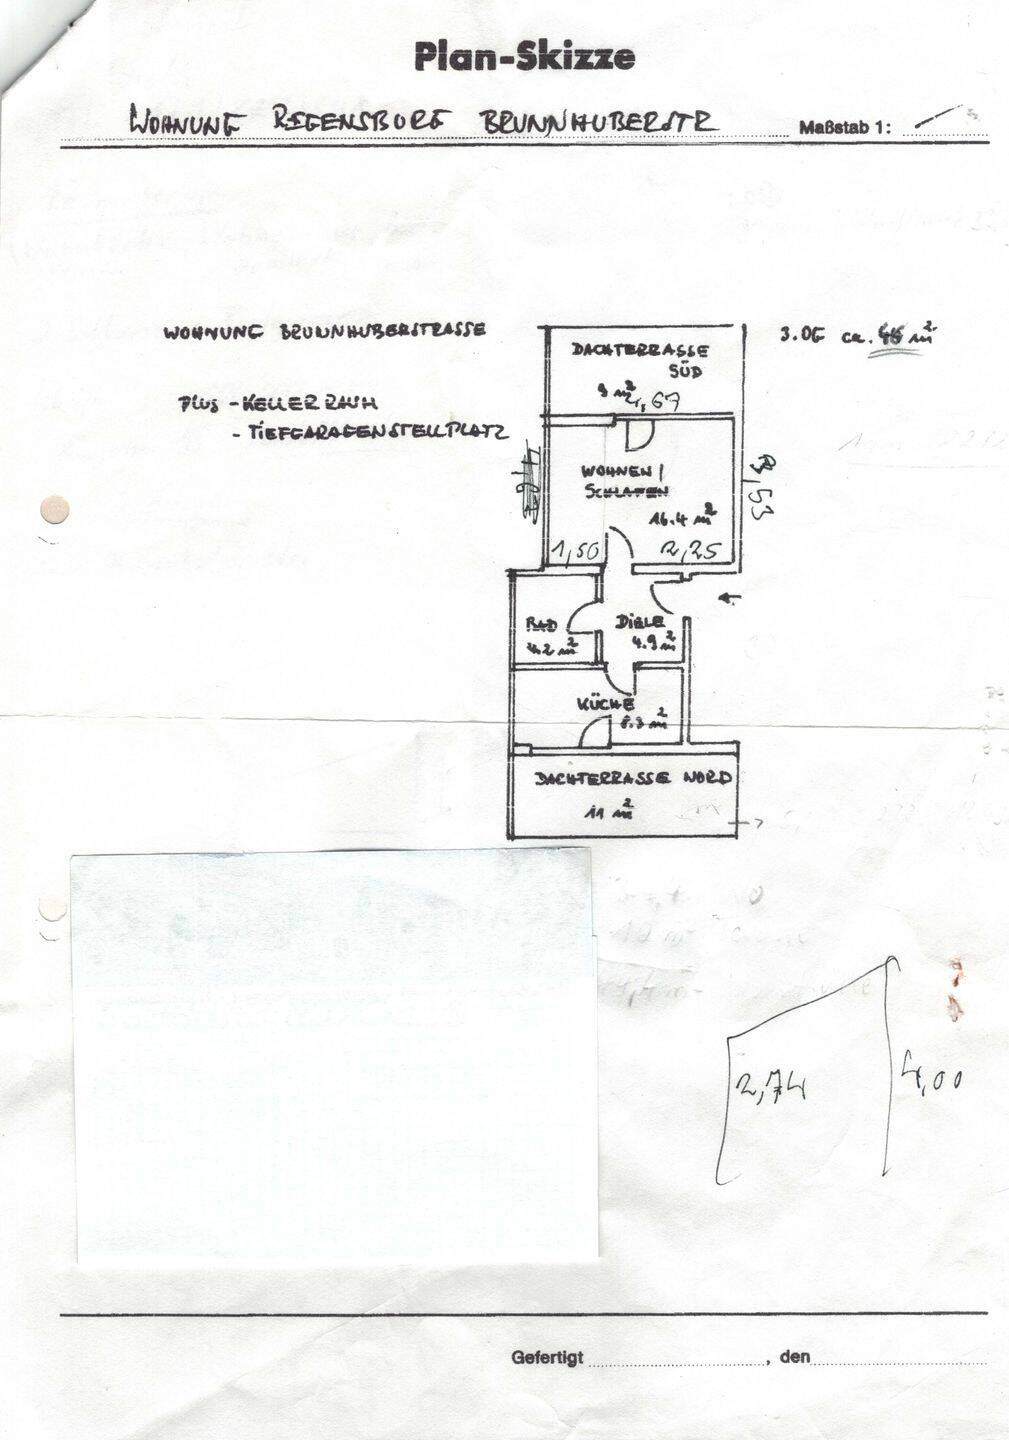 Plan-Skizze
WOHNUNG REGENSBURG BRUNNHUBERSTR Maßstab 1:
WOHNUNG BRUNNHUBERSTRASSE
3.OG ca. m²
PLUS - KELLERRAUM
- TIEFGARAGENSTELLPLATZ
DACHTERRASSE
SÜD
9 m²
,67
WOHNEN /
SCHLAFEN
16.4 m²
,53
1,50
2,25
BAD
4.2 m²
DIELE
4.9 m²
KÜCHE
8.3 m²
DACHTERRASSE NORD
11 m²
2,74
4,00
Gefertigt , den